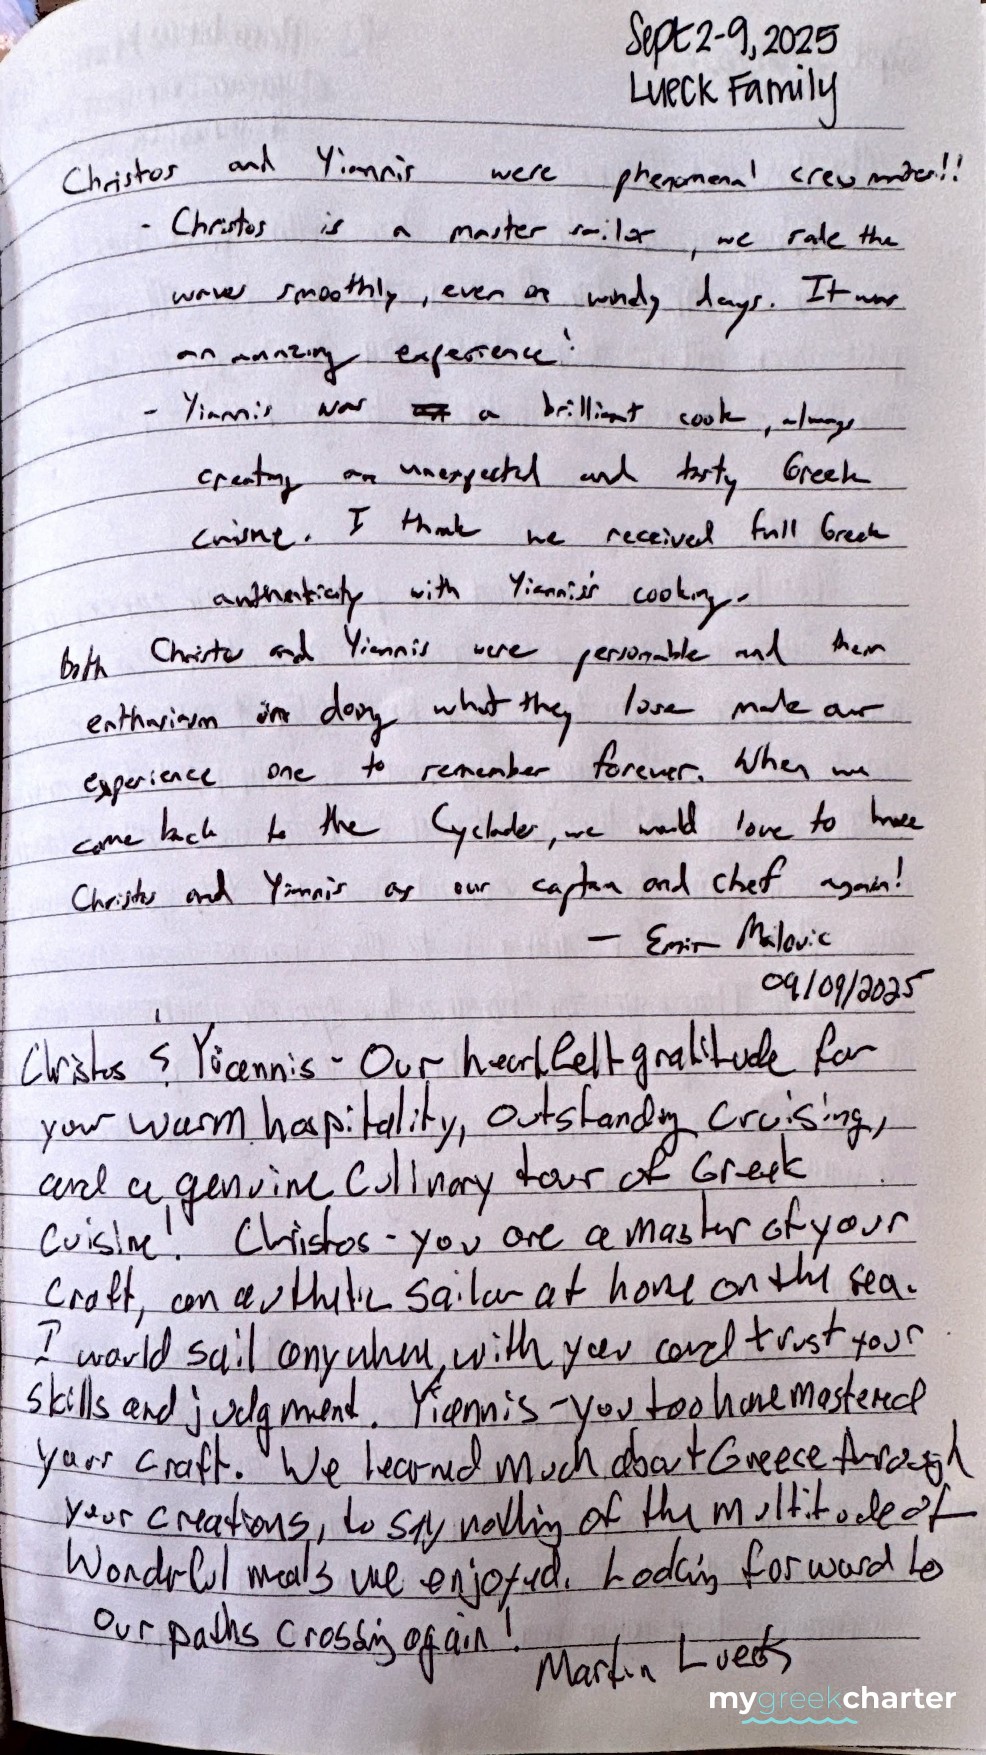 Sept 2-9, 2025
Lueck Family
Christos and Yiannis were phenomenal crew mates!!
- Christos is a master sailor, we rode the
waves smoothly, even on windy days. It was
an amazing experience!
- Yiannis was a brilliant cook, always
creating an unexpected and tasty Greek
cuisine. I think we received full Greek
authenticity with Yiannis's cooking.
Both Christos and Yiannis were personable and them
enthusiasm in doing what they love made our
experience one to remember forever. When we
come back to the Cyclades, we would love to have
Christos and Yiannis as our captain and chef again!
- Emir Milovic
09/09/2025
Christos & Yiannis - Our heartfelt gratitude for
your warm hospitality, outstanding cruising,
and a genuine culinary tour of Greek
cuisine! Christos - you are a master of your
craft, an authetic sailor at home on the sea.
I would sail anywhere with you and trust your
skills and judgment. Yiannis - you too have mastered
your craft. We learned much about Greece through
your creations, to say nothing of the multitude of
wonderful meals we enjoyed. Looking forward to
our paths crossing again!
Martin Lueck
mygreekcharter